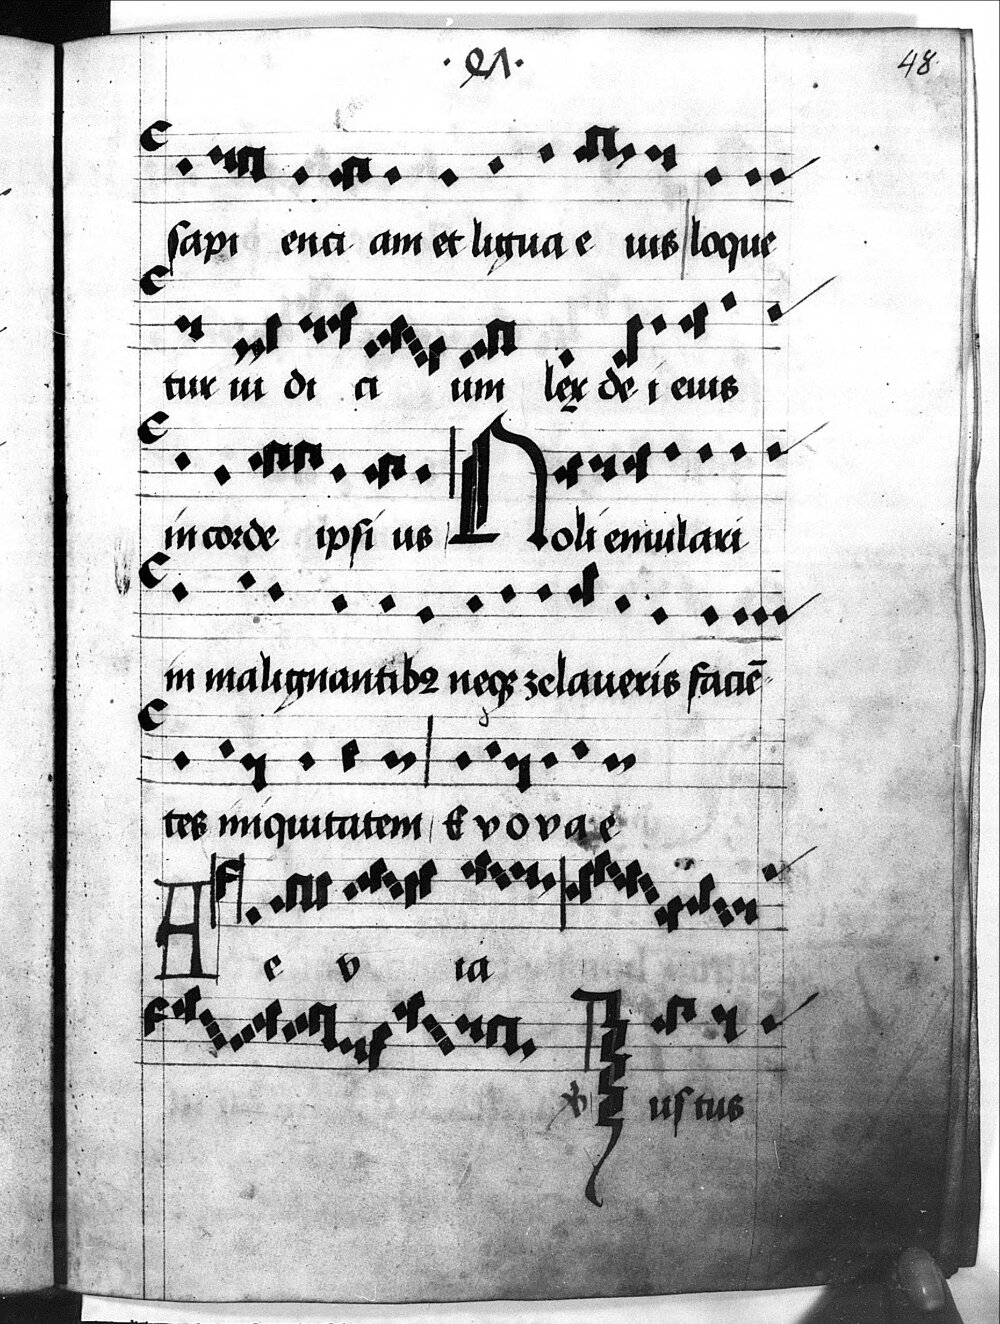 48
sapi enci am et ligua e ius loque
tur iu di ci um lex de i eius
in corde ipsi us Noli emulari
in malignantibꝫ neqꝫ zelaveris faciē
tes iniquitatem E v o v a e
A e v ia
℣ Iustus